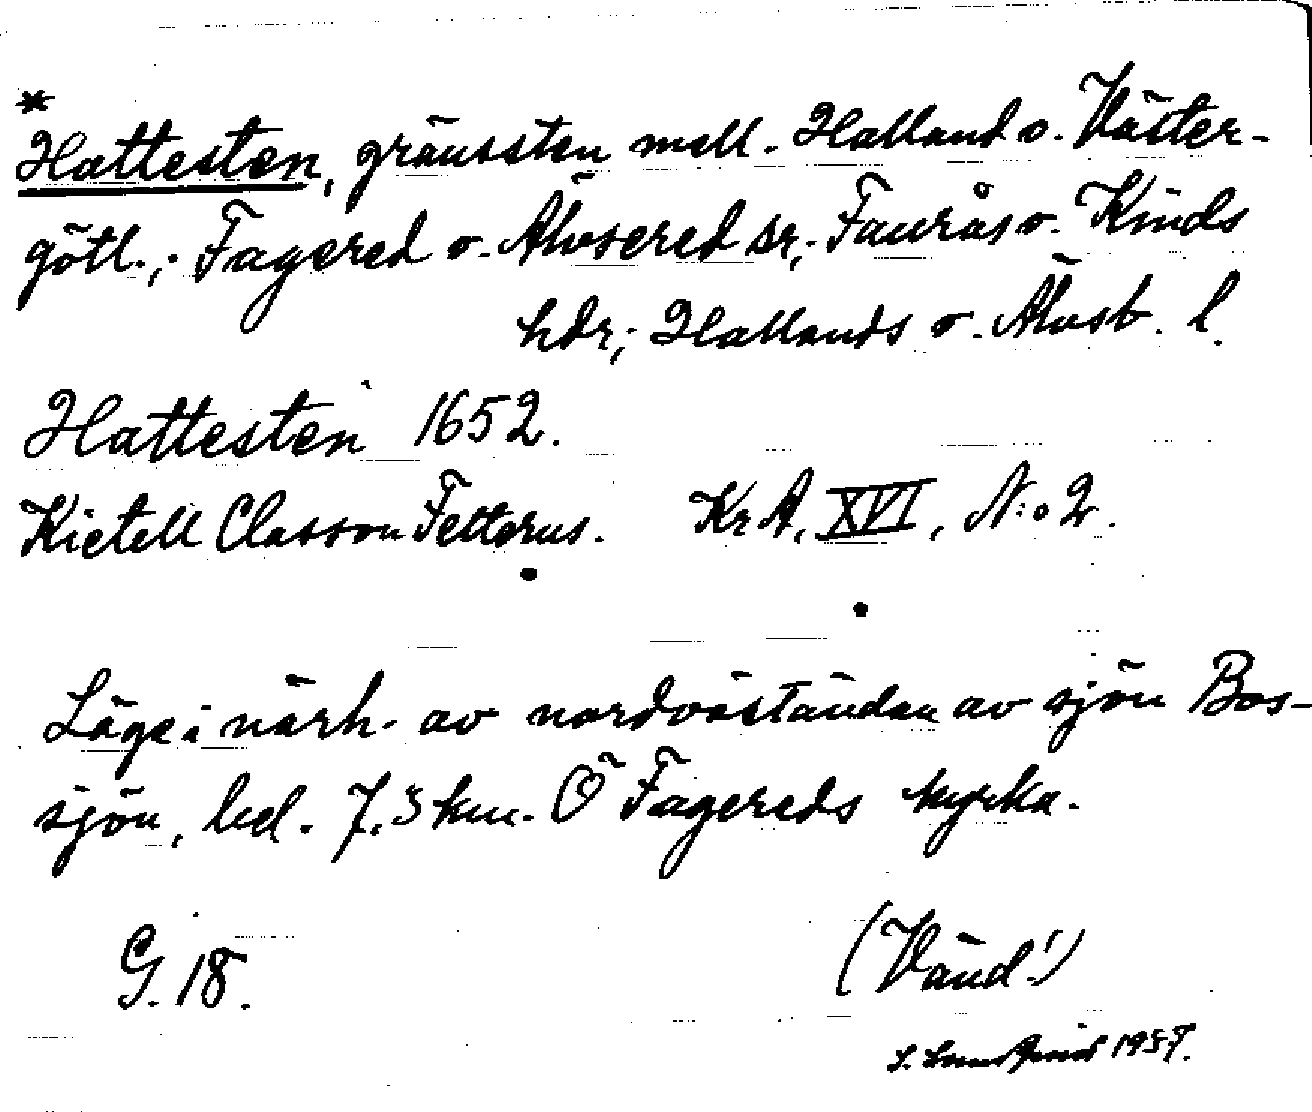 *
Hattesten, gränssten mell. Halland o. Väster-
götl.; Fagered o. Älvsered sr; Faurås o. Kinds
hdr; Hallands o. Älvsb. l.
Hattesten 1652.
Kietell Classon Felterus. KrA, XVI, N:o 2.
Läge i närh. av nordväständan av sjön Bos-
sjön, bel. 7,3 km. Ö Fagereds kyrka.
G. 18.
(Vänd!)
1957.